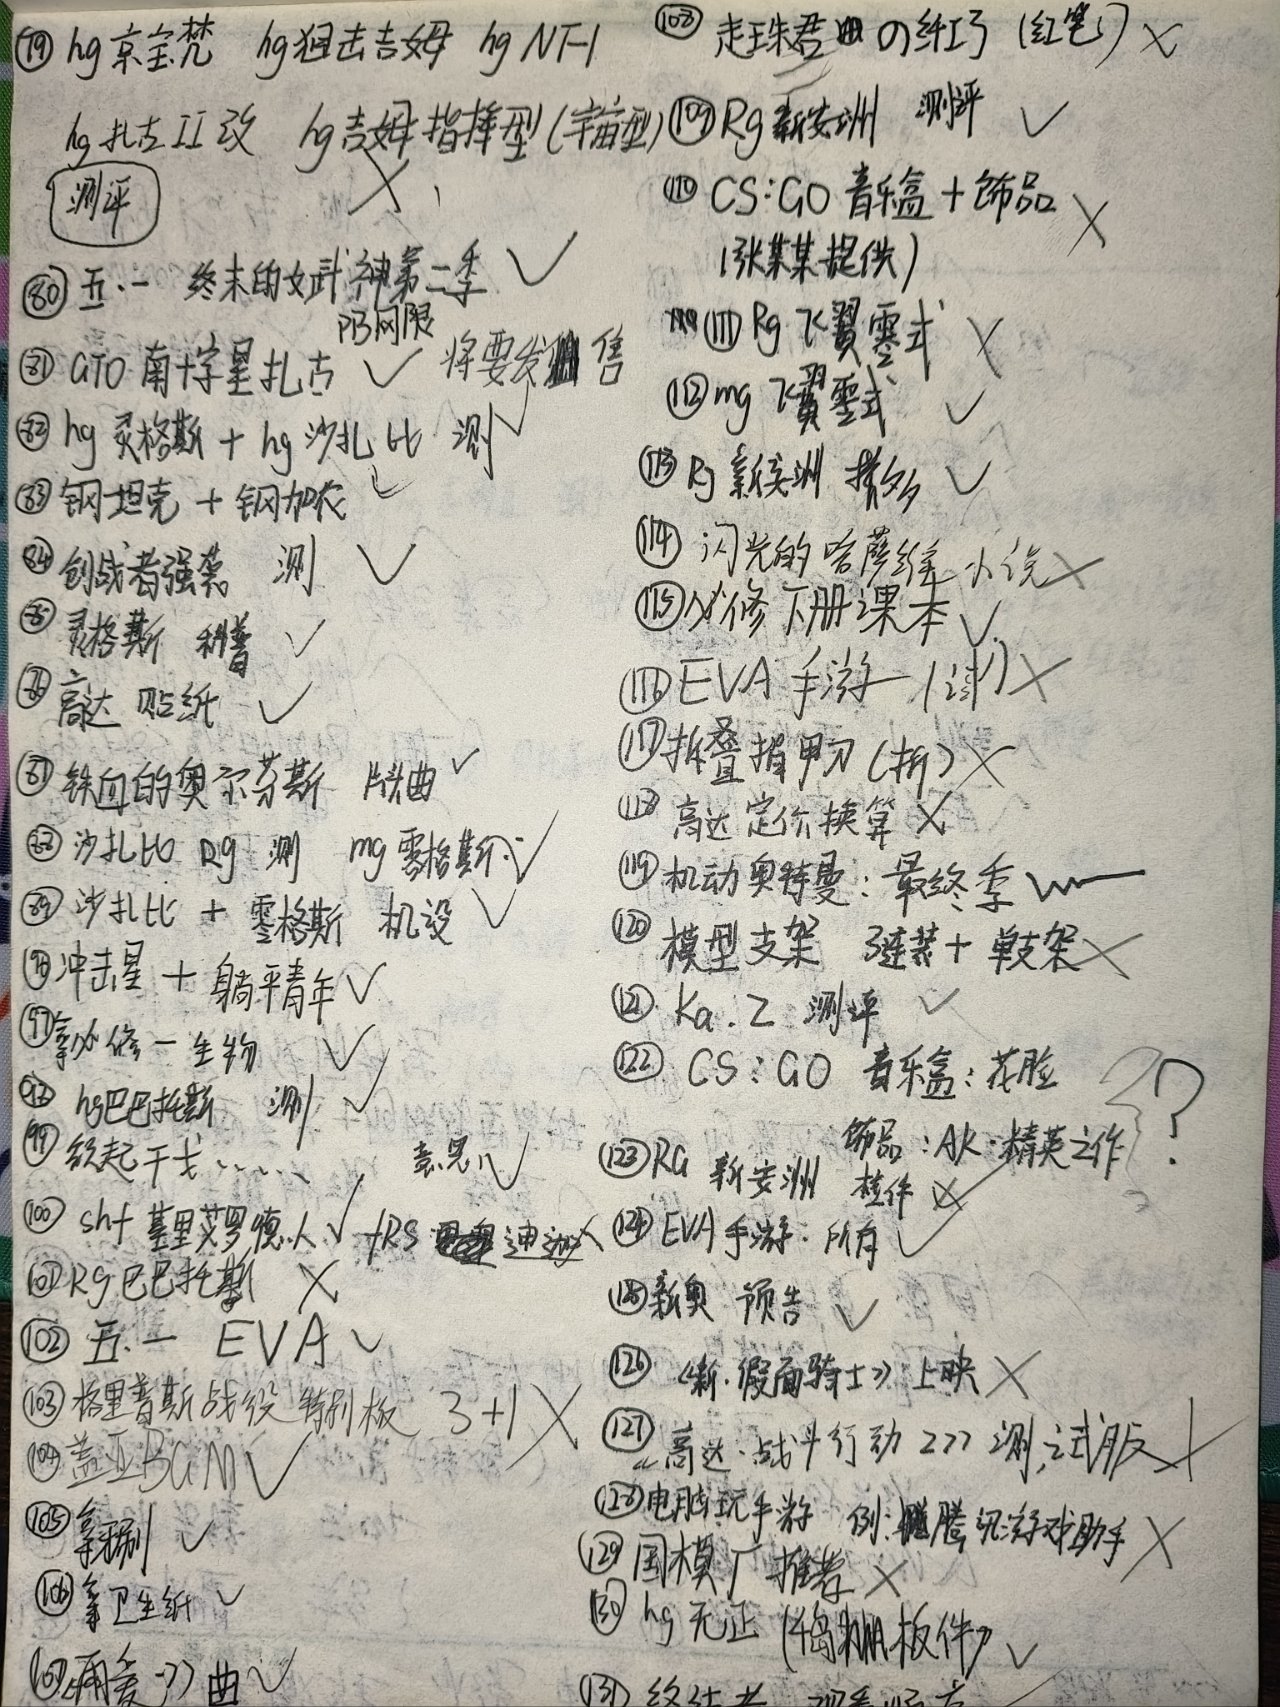 79 hg京宝梵 hg狙击吉姆 hg NT-1
hg扎古II改 hg吉姆指挥型(宇宙型)
测评
80 五·一 终末的女武神第二季
PB网限
81 GTO 南十字星扎古 将要发售
82 hg灵格斯+hg沙扎比 测
83 钢坦克+钢加农
84 创战者强袭 测
85 灵格斯 科普
86 高达 贴纸
87 铁血的奥尔芬斯 片头曲
88 沙扎比 Rg 测 mg零格斯
89 沙扎比+零格斯 机设
冲击星+躺平青年
97 拿必修一生物
98 hg巴巴托斯 测
99 欲起干戈…… 意思
100 shf 基里艾罗德人 + RS 迪迦
101 Rg巴巴托斯
102 五·一 EVA
103 格里普斯战役 特别板 3+1
104 盖亚BGM
105 拿牙刷
106 拿卫生纸
107 曲
108 走珠君の纤巧(红笔)
109 Rg新安洲 测评
110 CS:GO 音乐盒+饰品
(张某某提供)
111 Rg飞翼零式
112 mg飞翼零式
113 Rg新安洲
114 闪光的哈萨维 小说
115 必修下册课本
116 EVA手游
117 折叠指甲刀(折)
118 高达定价换算
119 机动奥特曼:最终季
120 模型支架 3连装+单支架
121 Ka.Z 测评
122 CS:GO 音乐盒:花脸
饰品:AK·精英之作 ?
123 RG 新安洲 植件
124 EVA手游:所有
125 新奥 预告
126 《新·假面骑士》上映
127 高达·战斗行动222 测试版
128 电脑玩手游 例:腾讯游戏助手
129 国模厂推荐
130 hg无正 板件)
131